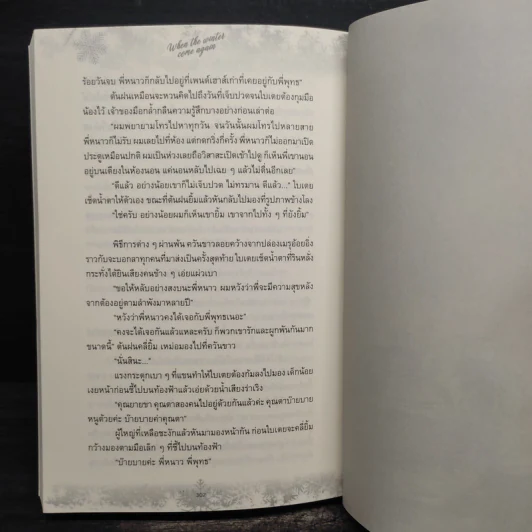 When the winter
come again
ร้อยวันจบ พี่หนาวก็กลับไปอยู่ที่เพนต์เฮาส์เก่าที่เคยอยู่กับพี่พุทธ"
ต้นฝนเหมือนจะหวนคิดไปถึงวันที่เจ็บปวดจนใบเตยต้องกุมมือ
น้องไว้ เจ้าของมือกล้ำกลืนความรู้สึกบางอย่างก่อนเล่าต่อ
"ผมพยายามโทรไปหาทุกวัน จนวันนั้นผมโทรไปหลายสาย
พี่หนาวก็ไม่รับ ผมเลยไปที่ห้อง แต่กดกริ่งกี่ครั้ง พี่หนาวก็ไม่ออกมาเปิด
ประตูเหมือนปกติ ผมเป็นห่วงเลยถือวิสาสะเปิดเข้าไปดู ก็เห็นพี่เขานอน
อยู่บนเตียงในห้องนอน แค่นอนหลับไปเฉย ๆ แล้วไม่ตื่นอีกเลย"
"ดีแล้ว อย่างน้อยเขาก็ไม่เจ็บปวด ไม่ทรมาน ดีแล้ว..." ใบเตย
เช็ดน้ำตาให้ตัวเอง ขณะที่ต้นฝนยิ้มแล้วหันกลับไปมองที่รูปภาพข้างโลง
"ใช่ครับ อย่างน้อยผมก็เห็นเขายิ้ม เขาจากไปทั้ง ๆ ที่ยังยิ้ม"
พิธีการต่าง ๆ ผ่านพ้น ควันขาวลอยคว้างจากปล่องเมรุอ้อยอิ่ง
ราวกับจะบอกลาทุกคนที่มาส่งเป็นครั้งสุดท้าย ใบเตยเช็ดน้ำตาที่รินหลั่ง
กระทั่งได้ยินเสียงคนข้าง ๆ เอ่ยแผ่วเบา
"ขอให้หลับอย่างสงบนะพี่หนาว ผมหวังว่าพี่จะมีความสุขหลัง
จากต้องอยู่ตามลำพังมาหลายปี"
"หวังว่าพี่หนาวคงได้เจอกับพี่พุทธเนอะ"
"คงจะได้เจอกันแล้วแหละครับ ก็พวกเขารักและผูกพันกันมาก
ขนาดนี้" ต้นฝนคลี่ยิ้ม เหม่อมองไปที่ควันขาว
"นั่นสินะ..."
แรงกระตุกเบา ๆ ที่แขนทำให้ใบเตยต้องก้มลงไปมอง เด็กน้อย
เงยหน้าก่อนชี้ไปบนท้องฟ้าแล้วเอ่ยด้วยน้ำเสียงร่าเริง
"คุณยายขา คุณตาสองคนไปอยู่ด้วยกันแล้วค่ะ คุณตาบ๊ายบาย
หนูด้วยค่ะ บ๊ายบายค่าคุณตา"
ผู้ใหญ่ที่เหลือชะงักแล้วหันมามองหน้ากัน ก่อนใบเตยจะคลี่ยิ้ม
กว้างมองตามมือเล็ก ๆ ที่ชี้ไปบนท้องฟ้า
"บ๊ายบายค่ะ พี่หนาว พี่พุทธ"